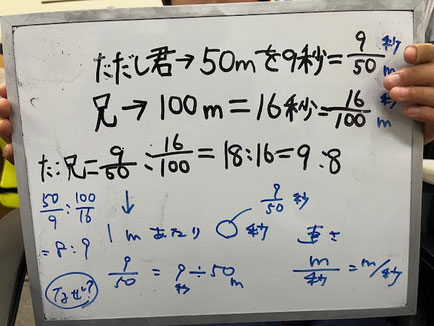 ただし君→50mを9秒=9/50 秒/m
兄→100m=16秒=16/100 秒/m
た:兄=9/50:16/100=18:16=9:8
50/9:100/16
=8:9
なぜ?
↓
1mあたり○秒
9/50秒
9/50=9秒÷50m
速さ
m/秒=m/秒